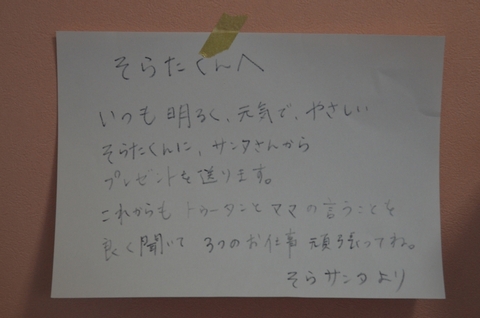 そらたくんへ
いつも明るく、元気で、やさしい
そらたくんに、サンタさんから
プレゼントを送ります。
これからも トゥータンとママの言うことを
良く聞いて 3つのお仕事 頑張ってね。
そらサンタより